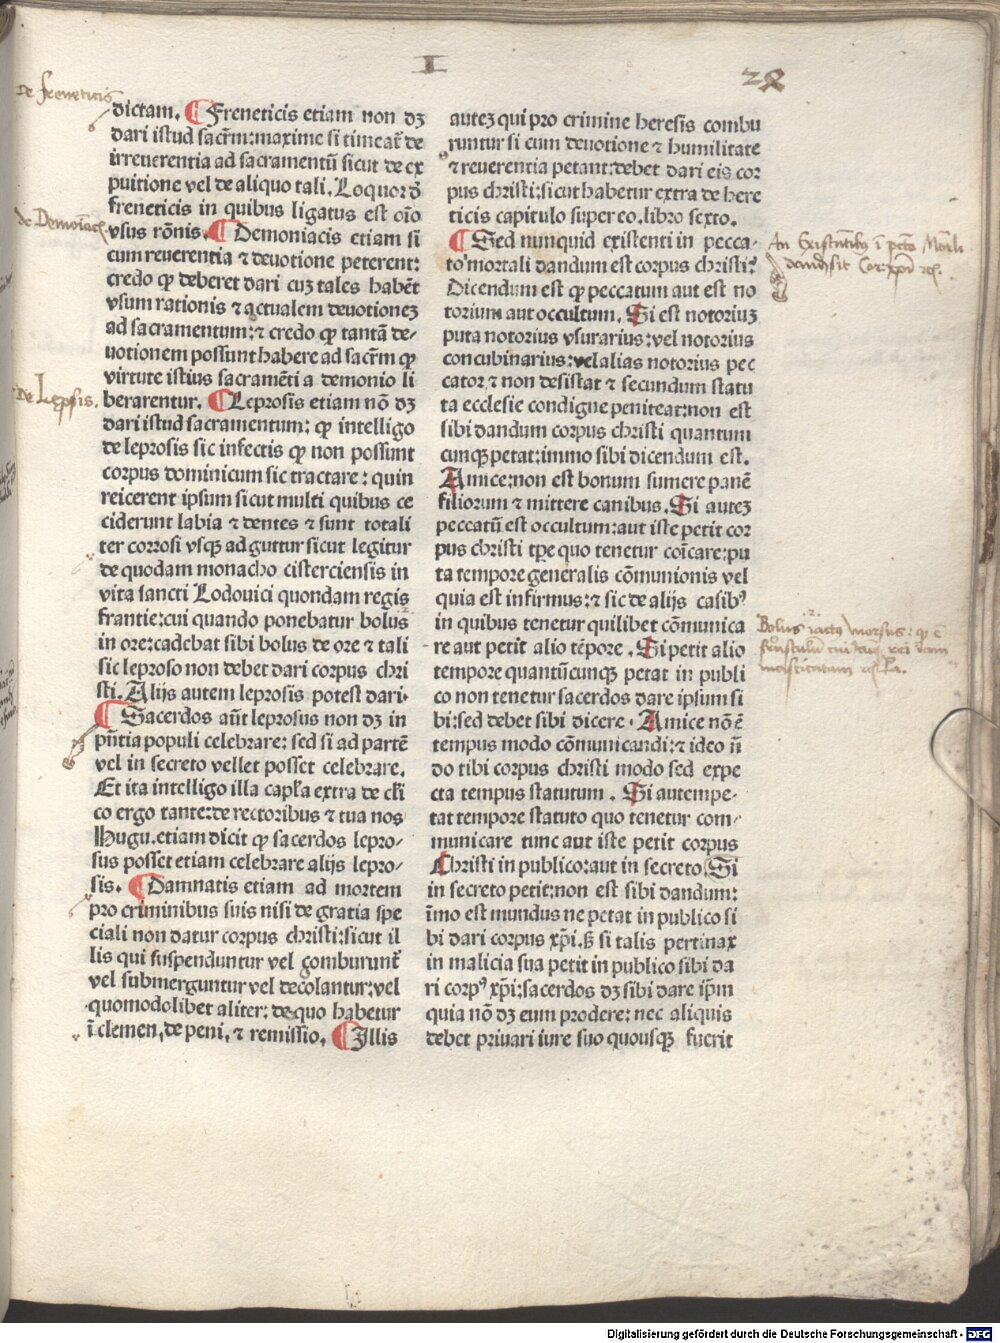 I
28
De freneticis
dictam. ¶ Freneticis etiam non dꝫ
dari istud sacr̄m: maxime si timeat᷑ de
irreuerentia ad sacramentū sicut de ex
puitione vel de aliquo tali. Loquor ď
freneticis in quibus ligatus est oīo
vsus rōnis. ¶ Demoniacis etiam si
cum reuerentia ⁊ deuotione peterent:
credo ꝙ deberet dari cuꝫ tales habēt
vsum rationis ⁊ actualem deuotioneꝫ
ad sacramentum: ⁊ credo ꝙ tantā de-
uotionem possunt habere ad sacr̄m ꝙ
virtute istius sacramēti a demonio li
berarentur. ¶ Leprosis etiam nō dꝫ
De Lep̄sis.
dari istud sacramentum: ꝙ intelligo
de leprosis sic infectis ꝙ non possunt
corpus dominicum sic tractare: quin
reicerent ipsum sicut multi quibus ce
ciderunt labia ⁊ dentes ⁊ sunt totali
ter corrosi vsqꝫ ad guttur sicut legitur
de quodam monacho cisterciensis in
vita sancti Lodouici quondam regis
frantie: cui quando ponebatur bolus
in ore: cadebat sibi bolus de ore ⁊ tali
sic leproso non debet dari corpus chri
sti. Alijs autem leprosis potest dari.
¶ Sacerdos aūt leprosus non dꝫ in
pn̄tia populi celebrare: sed si ad partē
vel in secreto vellet posset celebrare.
Et ita intelligo illa capl'a extra de cl'i
co ergo tante: de rectoribus ⁊ tua nos
Hugu. etiam dicit ꝙ sacerdos lepro-
sus posset etiam celebrare alijs lepro-
sis. ¶ Damnatis etiam ad mortem
pro criminibus suis nisi de gratia spe
ciali non datur corpus christi: sicut il
lis qui suspenduntur vel comburunt᷑
vel submerguntur vel decolantur: vel
quomodolibet aliter: de quo habetur
ī clemen. de peni. ⁊ remissio. ¶ Illis
auteꝫ qui pro crimine heresis combu
runtur si cum deuotione ⁊ humilitate
⁊ reuerentia petant: debet dari eis cor
pus christi: sicut habetur extra de here
ticis capitulo super eo. libro sexto.
¶ Sed nunquid existenti in pecca-
to mortali dandum est corpus christi?
Dicendum est ꝙ peccatum aut est no
torium aut occultum. Si est notoriuꝫ
puta notorius vsurarius: vel notorius
concubinarius: vel alias notorius pec
cator. ⁊ non desistat ⁊ secundum statu
ta ecclesie condigne peniteat: non est
sibi dandum corpus christi quantum
cunqꝫ petat: immo sibi dicendum est.
Amice: non est bonum sumere panē
filiorum ⁊ mittere canibus. Si auteꝫ
peccatū est occultum: aut iste petit cor
pus christi tp̄e quo tenetur coīcare: pu
ta tempore generalis cōmunionis vel
quia est infirmus: ⁊ sic de alijs casibꝰ
in quibus tenetur quilibet cōmunica
re aut petit alio tēpore. Si petit alio
tempore quantūcunqꝫ petat in publi
co non tenetur sacerdos dare ipsum si
bi: sed debet sibi dicere. Amice nō ē
tempus modo cōmunicandi: ⁊ ideo n̄
do tibi corpus christi modo sed expe
cta tempus statutum. Si autem pe-
tat tempore statuto quo tenetur com-
municare tunc aut iste petit corpus
Christi in publico: aut in secreto Si
in secreto petit: non est sibi dandum:
īmo est mundus ne petat in publico si
bi dari corpus xp̄i. ß si talis pertinax
in malicia sua petit in publico sibi da
ri corpꝰ xp̄i: sacerdos dꝫ sibi dare ip̄m
quia nō dꝫ eum prodere: nec aliquis
debet priuari iure suo quousqꝫ fuerit
Digitalisierung gefördert durch die Deutsche Forschungsgemeinschaft - DFG